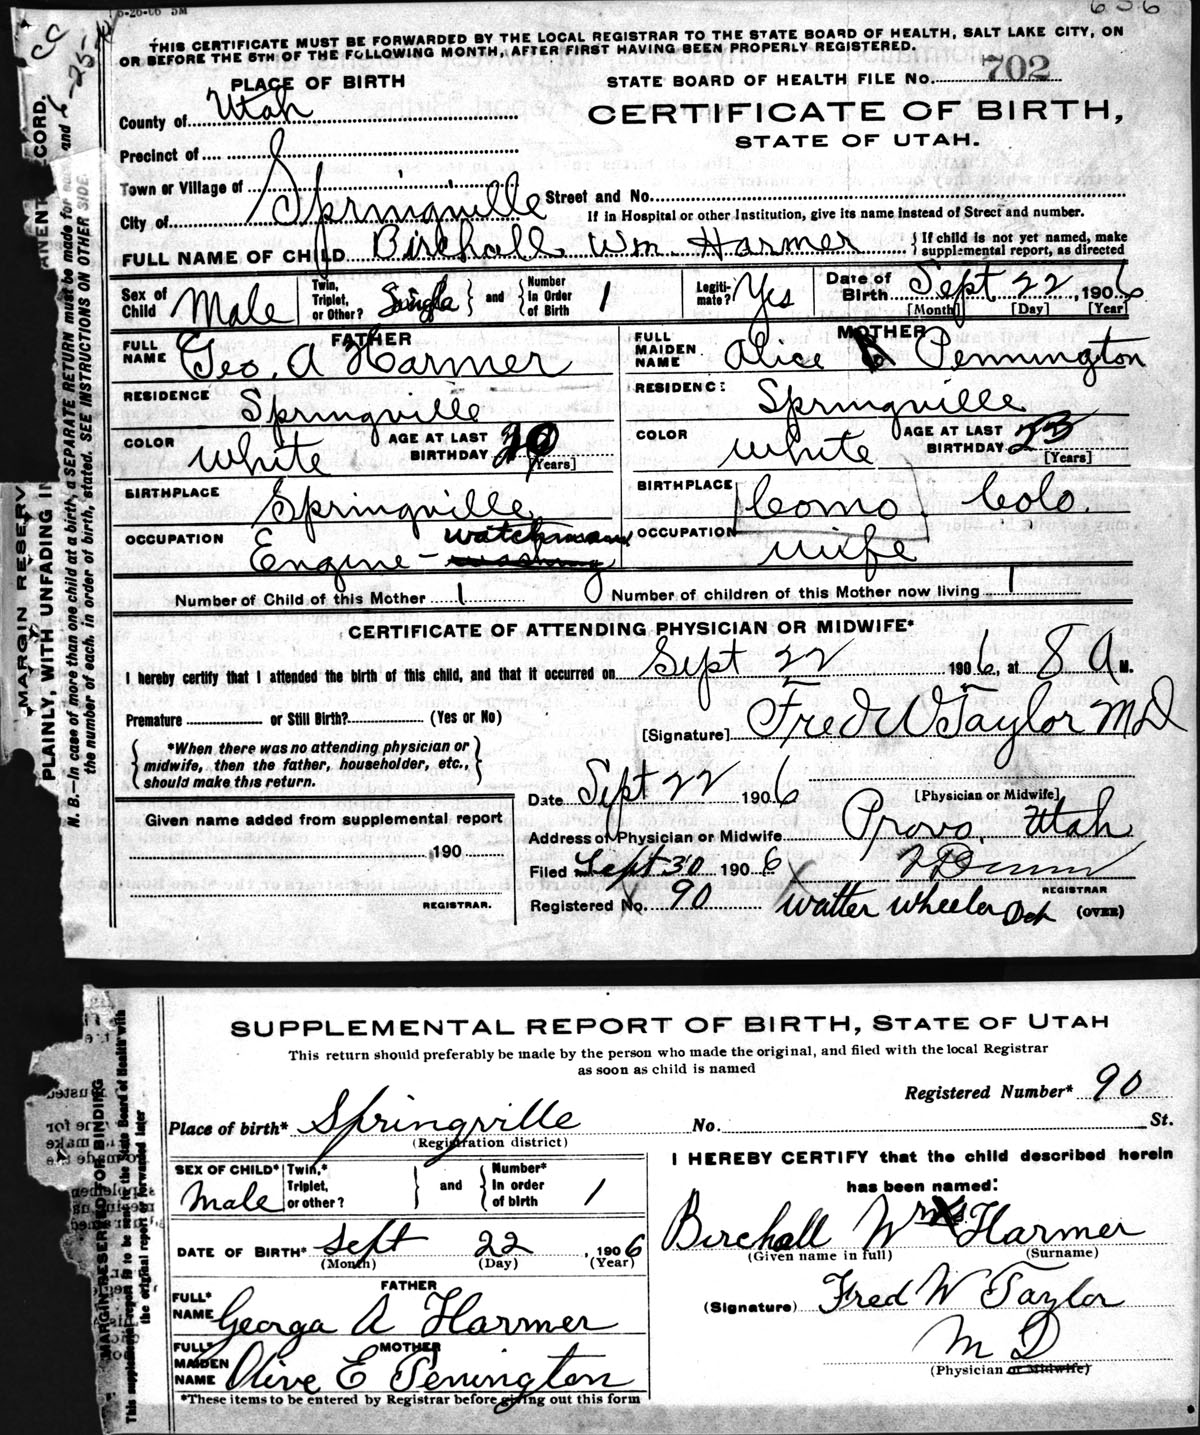 5-26-06 5M
636
THIS CERTIFICATE MUST BE FORWARDED BY THE LOCAL REGISTRAR TO THE STATE BOARD OF HEALTH, SALT LAKE CITY, ON
OR BEFORE THE 5TH OF THE FOLLOWING MONTH, AFTER FIRST HAVING BEEN PROPERLY REGISTERED.
PLACE OF BIRTH
STATE BOARD OF HEALTH FILE No. 702
County of Utah
CERTIFICATE OF BIRTH,
STATE OF UTAH.
Precinct of
Town or Village of
City of Springville
Street and No.
If in Hospital or other Institution, give its name instead of Street and number.
FULL NAME OF CHILD Birchall Wm Harmer { If child is not yet named, make supplemental report, as directed
Sex of Child Male Twin, Triplet, or Other? Single } and { Number In Order of Birth 1 Legiti- mate? Yes Date of Birth Sept 22, 1906
[Month] [Day] [Year]
FATHER
FULL NAME Geo. A Harmer
RESIDENCE Springville
COLOR White AGE AT LAST BIRTHDAY
[Years]
BIRTHPLACE Springville
OCCUPATION Engine - watchman
MOTHER
FULL MAIDEN NAME Alice Pennington
RESIDENCE: Springville
COLOR White AGE AT LAST BIRTHDAY 23
[Years]
BIRTHPLACE Como Colo.
OCCUPATION wife
Number of Child of this Mother 1 Number of children of this Mother now living 1
CERTIFICATE OF ATTENDING PHYSICIAN OR MIDWIFE*
I hereby certify that I attended the birth of this child, and that it occurred on Sept 22 1906, at 8 A M.
Premature or Still Birth? (Yes or No)
[Signature] Fred W Taylor MD
{ *When there was no attending physician or midwife, then the father, householder, etc., should make this return. }
Date Sept 22 1906
[Physician or Midwife]
Given name added from supplemental report
190
REGISTRAR.
Address of Physician or Midwife Provo, Utah
Filed Sept 30 1906
REGISTRAR
Registered No. 90 Walter Wheeler Dep (OVER)
MARGIN RESERV
PLAINLY, WITH UNFADING IN
ANENT RECORD.
N. B.—In case of more than one child at a birth, a SEPARATE RETURN must be made for each and
the number of each, in order of birth, stated. SEE INSTRUCTIONS ON OTHER SIDE.
SUPPLEMENTAL REPORT OF BIRTH, STATE OF UTAH
This return should preferably be made by the person who made the original, and filed with the local Registrar
as soon as child is named
Registered Number* 90
Place of birth* Springville No. St.
(Registration district)
SEX OF CHILD* Male Twin,* Triplet, or other? } and { Number* In order of birth 1
DATE OF BIRTH* Sept 22, 1906
(Month) (Day) (Year)
FATHER
FULL* NAME George A Harmer
MOTHER
FULL* MAIDEN NAME Olive E Penington
*These items to be entered by Registrar before giving out this form
I HEREBY CERTIFY that the child described herein
has been named:
Birchall Wm Harmer
(Given name in full) (Surname)
(Signature) Fred W Taylor
M D
(Physician or Midwife)
MARGIN RESERVED FOR BINDING
This supplemental report is to be sent to the State Board of Health with
the original report or forwarded later